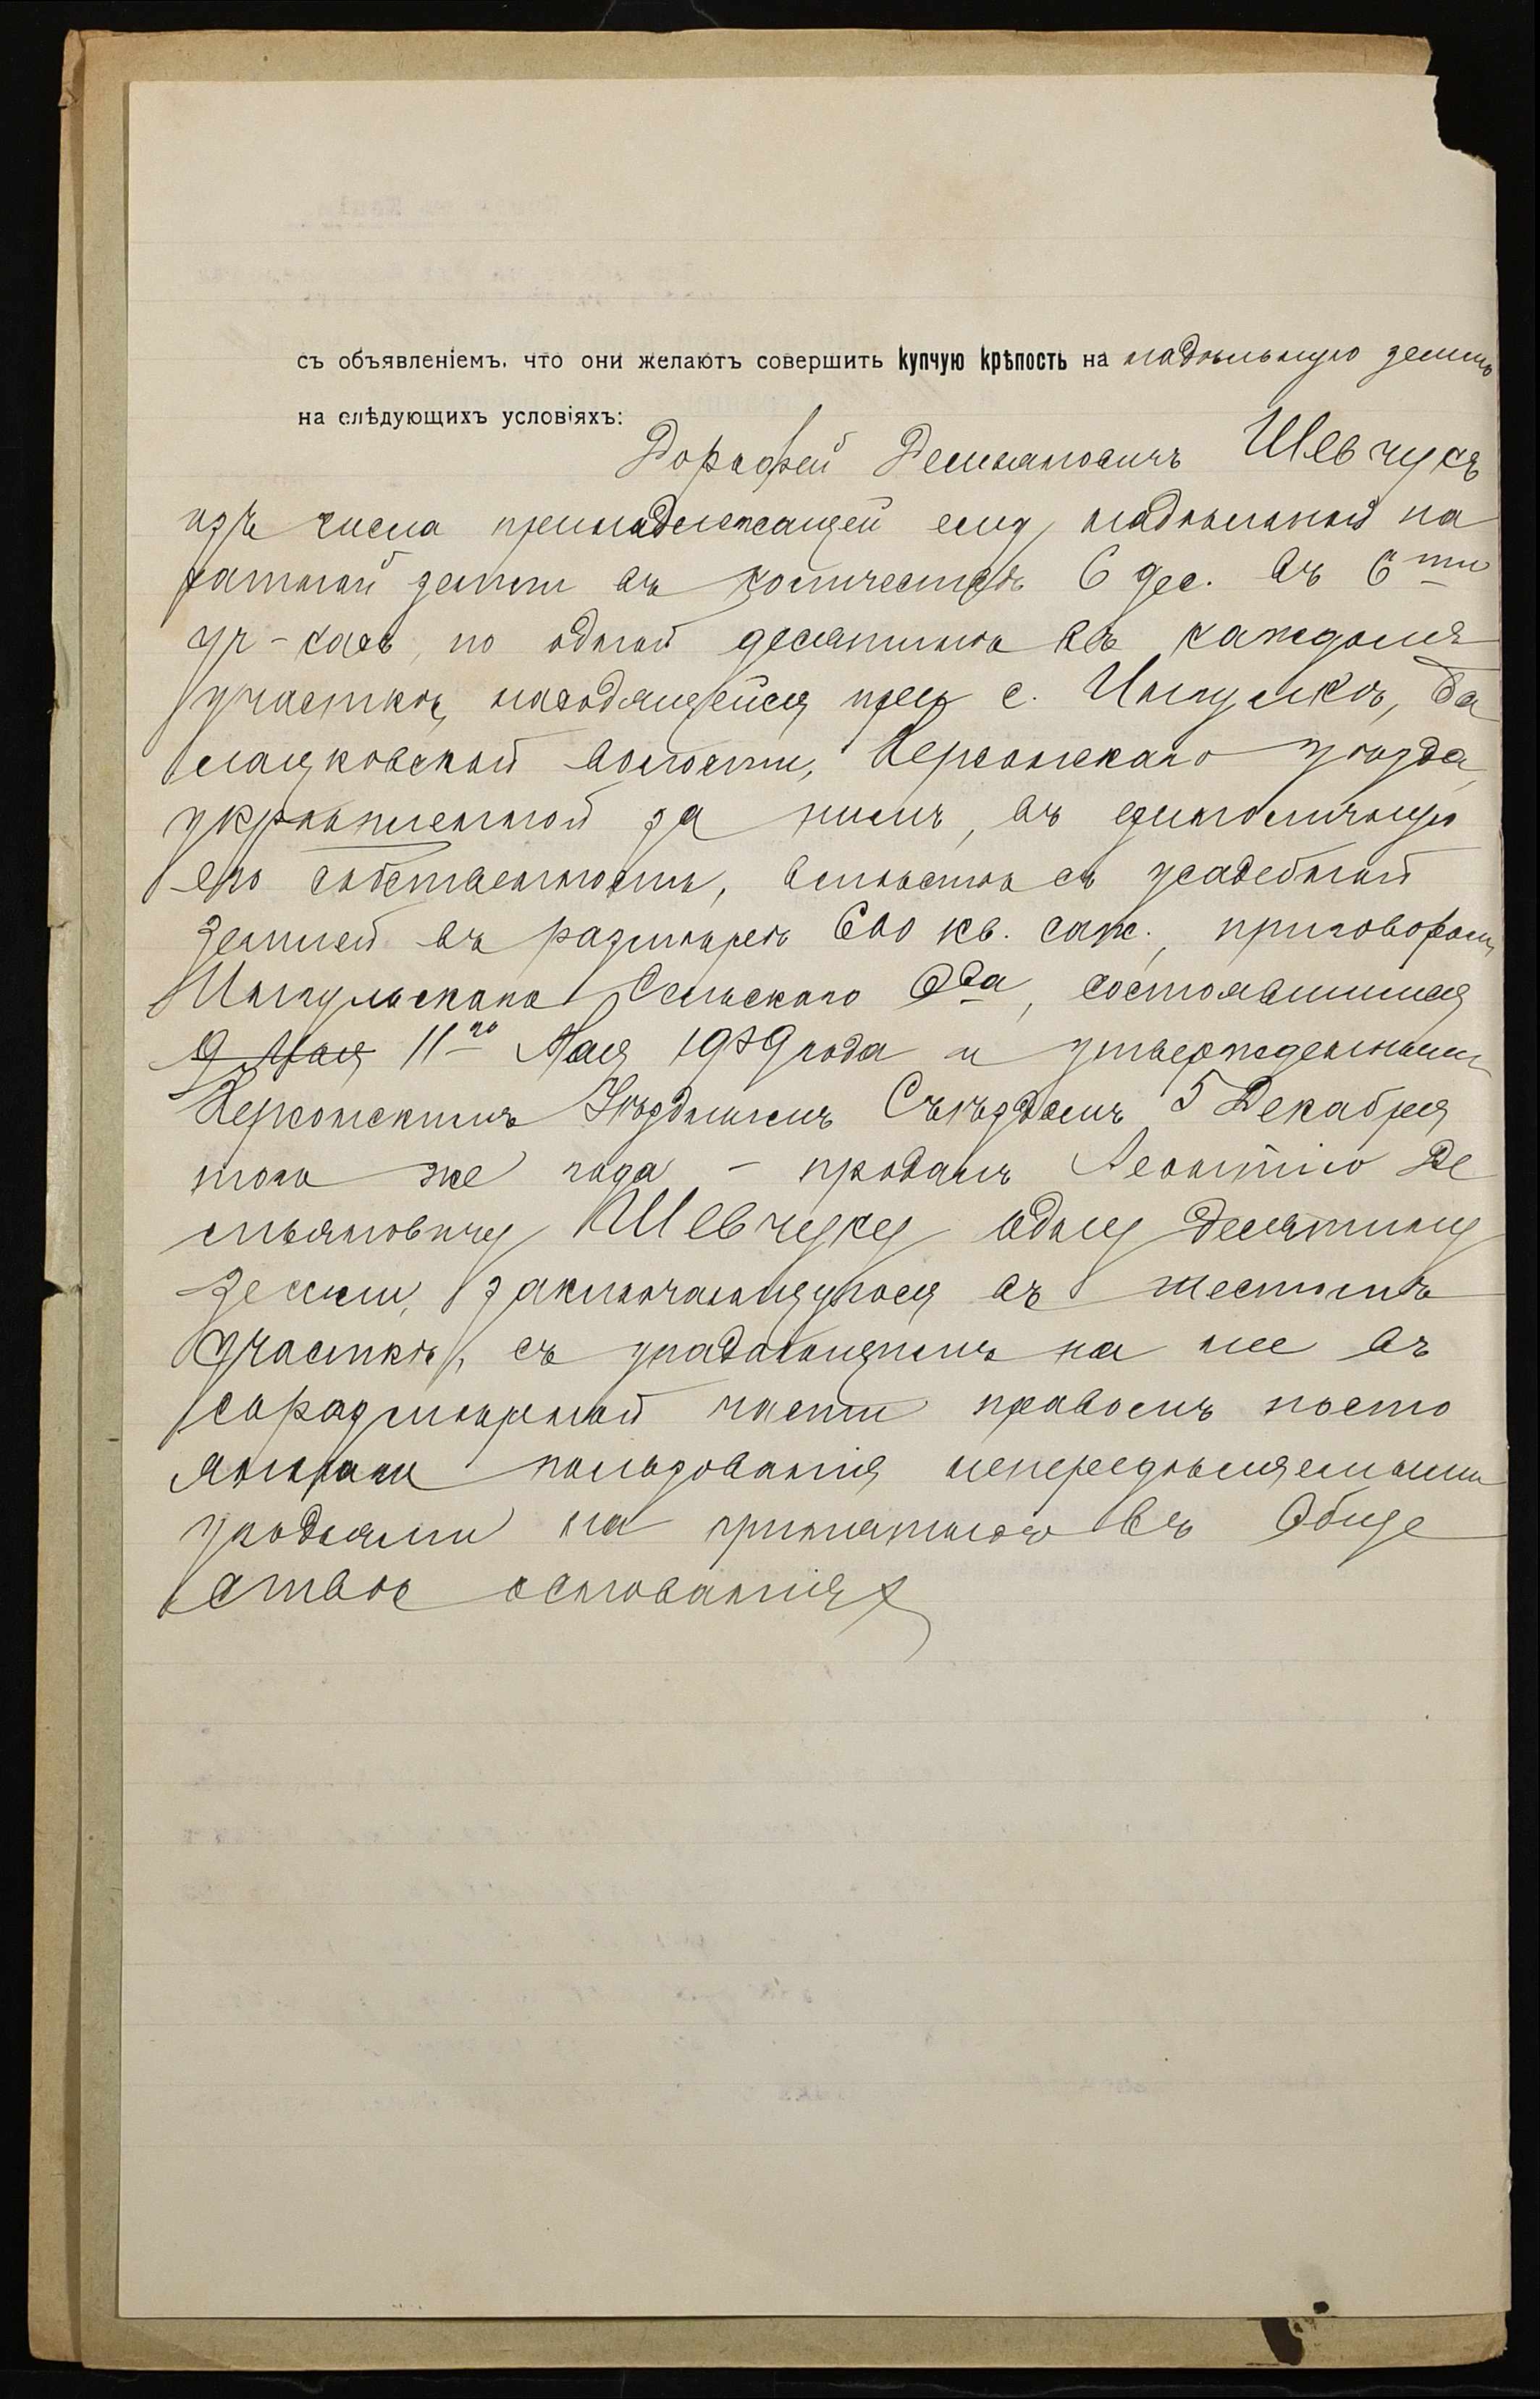 съ объявленіемъ, что они желаютъ совершить купчую крѣпость на надѣльную землю
на слѣдующихъ условіяхъ:
Дорофей Демьяновичъ Шевчукъ
изъ числа принадлежащей ему надѣльной па
хатной земли въ количествѣ 6 дес. въ 6ти
уч-кахъ, по одной десятинѣ въ каждомъ
участкѣ, находящейся при с. Ингулкѣ, Ба
лацковской волости, Херсонскаго уѣзда,
укрѣпленной за нимъ, въ единоличную
его собственность, вмѣстѣ съ усадебной
землей въ размѣрѣ 600 кв. саж., приговоромъ
Ингульскаго Сельскаго О-ва, состоявшимся
9 Мая 11го Мая 1909 года и утвержденнымъ
Херсонскимъ Уѣзднымъ Съѣздомъ 5 Декабря
того же года - продалъ Леонтію Де
мьяновичу Шевчуку одну десятину
земли, заключающуюся въ шестомъ
участкѣ, съ упадающимъ на нее въ
соразмѣрной части правомъ посто
яннаго пользованія непередѣляемыми
угодьями на принятыхъ въ Обще
ствѣ основаніях